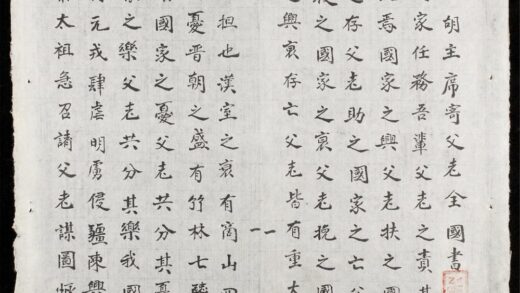 胡主席寄父老全國書
家任務吾輩父老之責其
焉國家之興父老扶之國
之存父老助之國家之亡父
之國家之衰父老挽之國
興衰存亡父老皆有重大
担也漢室之衰有商山四
憂晉朝之盛有竹林七
國家之憂父老共分其
家之樂父老共分其樂我國
元戎肆虐明虜侵疆陳興
太祖急召請父老謀圖